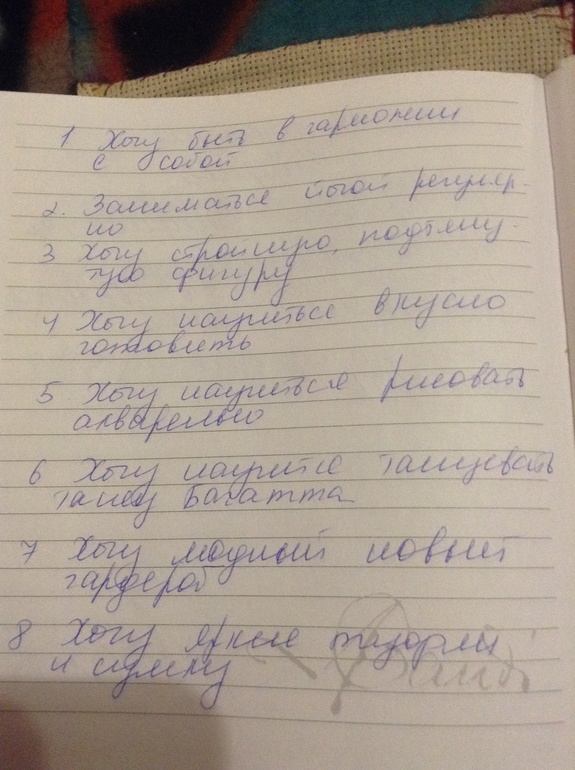 1 Хочу быть в гармонии
с собой
2. Заниматься йогой регуляр-
но
3 Хочу стройную, подтяну-
тую фигуру
4 Хочу научиться вкусно
готовить
5 Хочу научиться рисовать
акварелью
6 Хочу научится танцевать
танец Бачатта
7 Хочу модный новый
гардероб
8 Хочу яркие
и сумку